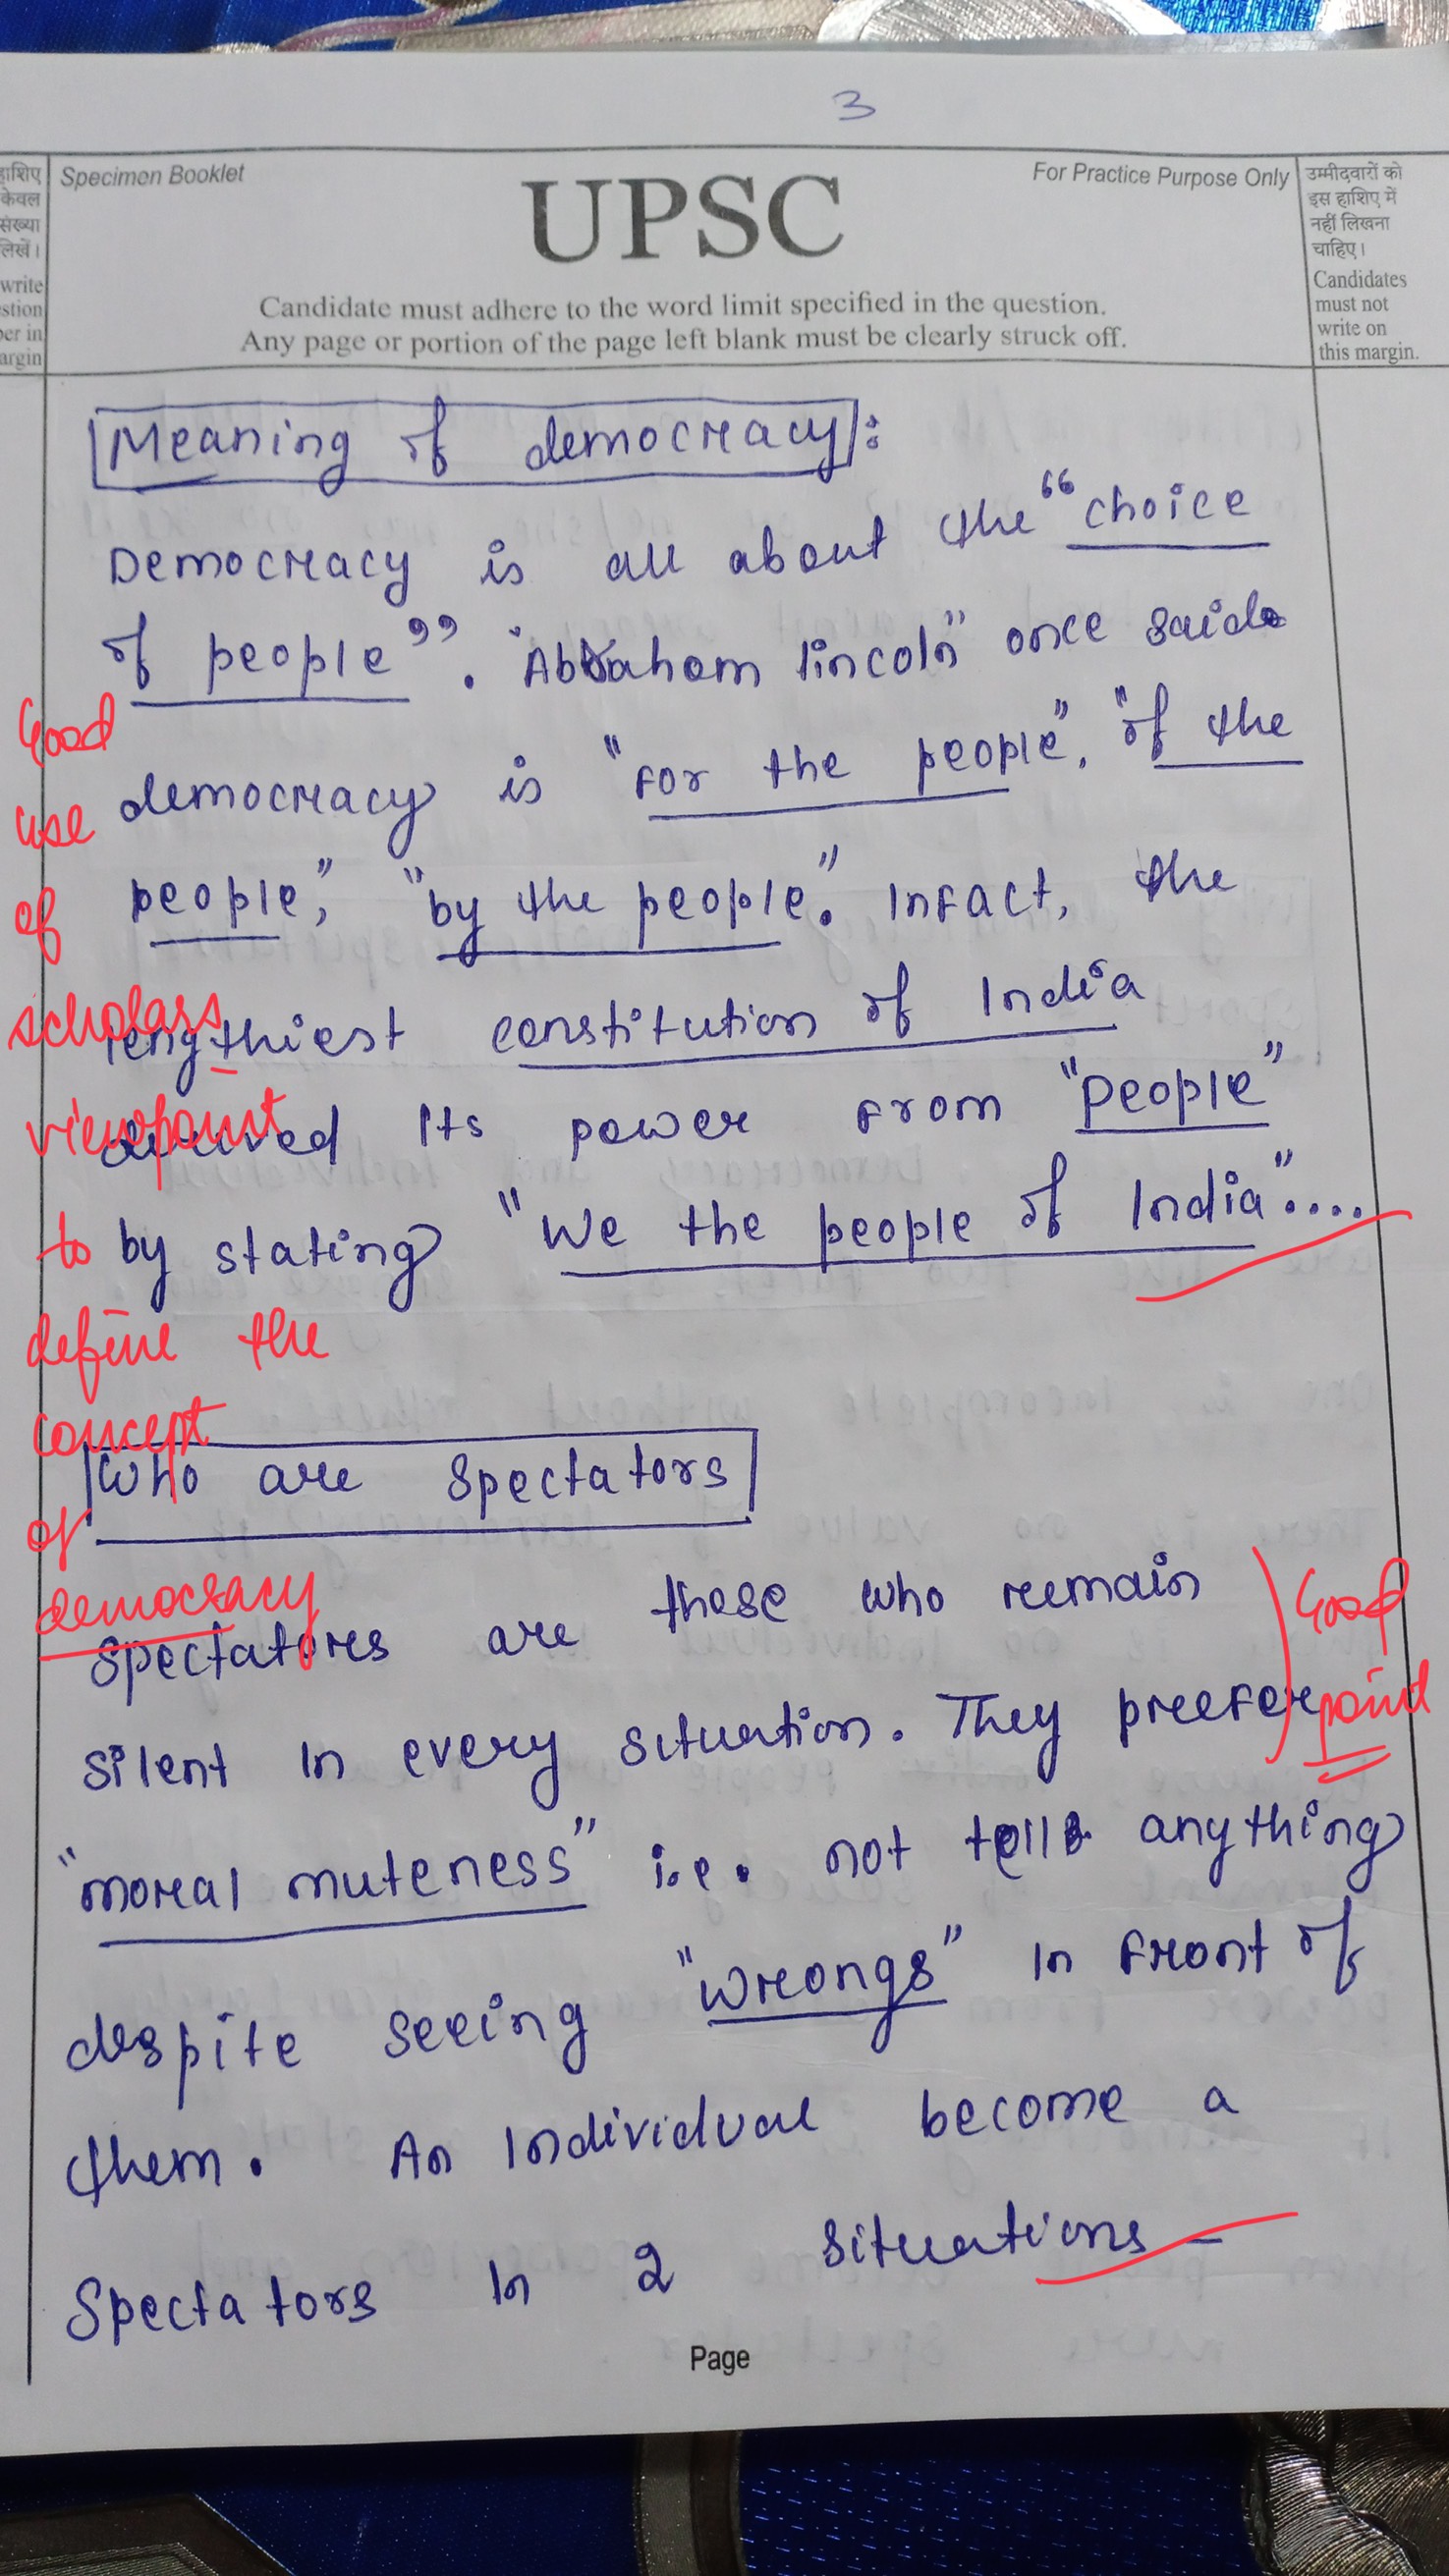 3
Specimen Booklet
UPSC
For Practice Purpose Only
Candidate must adhere to the word limit specified in the question.
Any page or portion of the page left blank must be clearly struck off.
हाशिए
केवल
संख्या
लिखें।
write
stion
er in
argin
उम्मीदवारों को
इस हाशिए में
नहीं लिखना
चाहिए।
Candidates
must not
write on
this margin.
Meaning of democracy:
Democracy is all about the "choice
of people". "Abraham lincoln" once said
democracy is "for the people", "of the
people", "by the people". Infact, the
lengthiest constitution of India
derived its power from "people"
by stating "We the people of India"....
Who are Spectators
Spectators are those who remain
silent in every situation. They prefer
"moral muteness" i.e. not tell anything
despite seeing "wrongs" in front of
them. An individual become a
Spectators in 2 situations –
Good
use
of
scholars
viewpoint
to
define the
concept
of
democracy
Good
point
Page